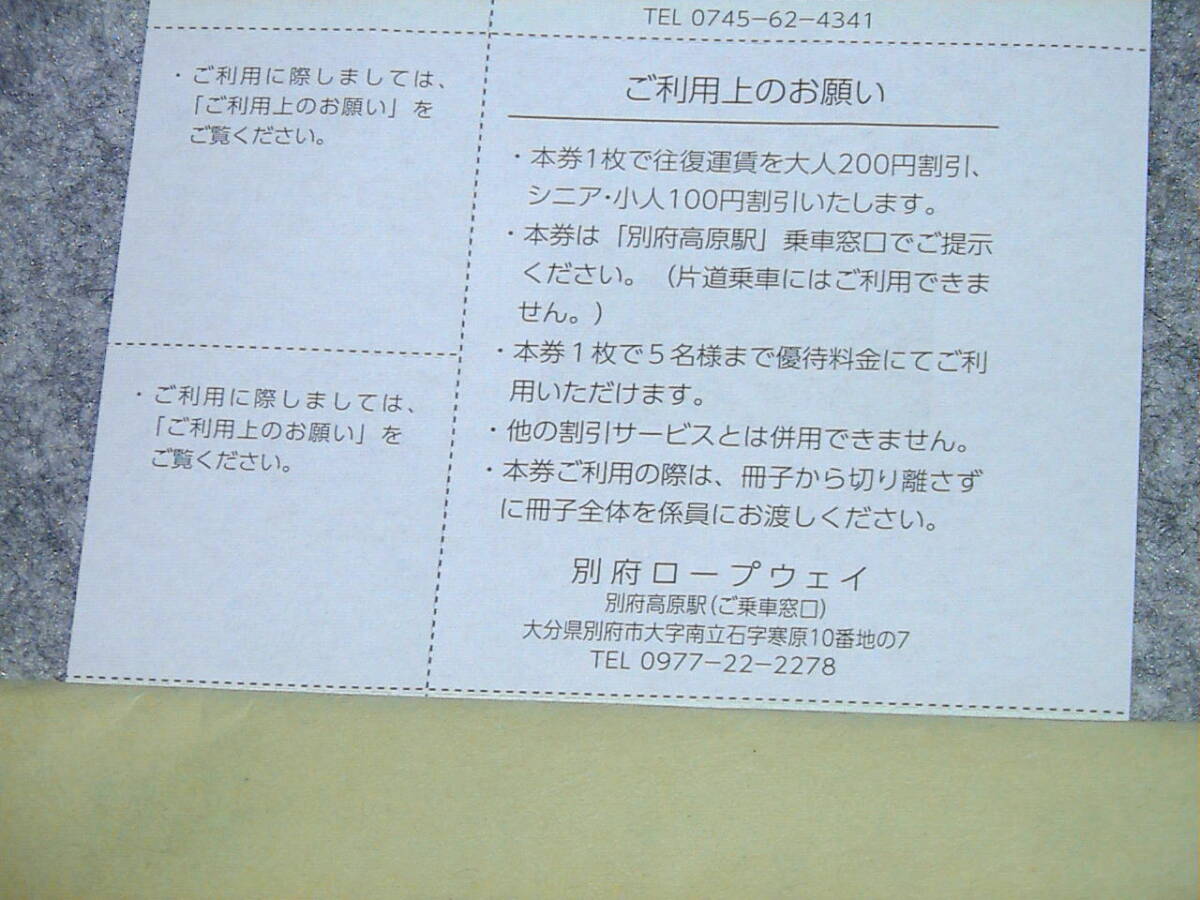 TEL 0745-62-4341
・ご利用に際しましては、
「ご利用上のお願い」を
ご覧ください。
・ご利用に際しましては、
「ご利用上のお願い」を
ご覧ください。
ご利用上のお願い
・本券1枚で往復運賃を大人200円割引、
シニア・小人100円割引いたします。
・本券は「別府高原駅」乗車窓口でご提示
ください。（片道乗車にはご利用できま
せん。）
・本券1枚で5名様まで優待料金にてご利
用いただけます。
・他の割引サービスとは併用できません。
・本券ご利用の際は、冊子から切り離さず
に冊子全体を係員にお渡しください。
別府ロープウェイ
別府高原駅（ご乗車窓口）
大分県別府市大字南立石字寒原10番地の7
TEL 0977-22-2278